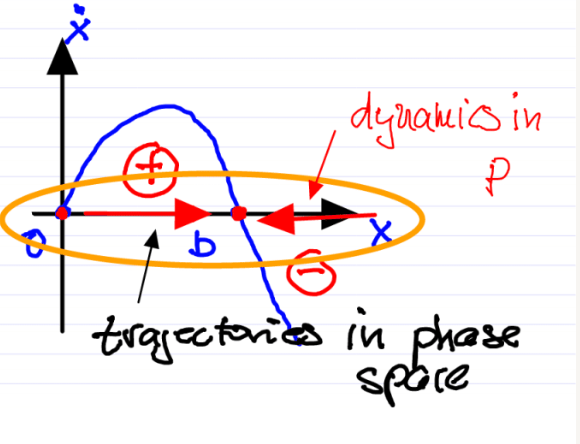 ẋ
dynamics in
P
+
0
b
x
−
trajectories in phase
space